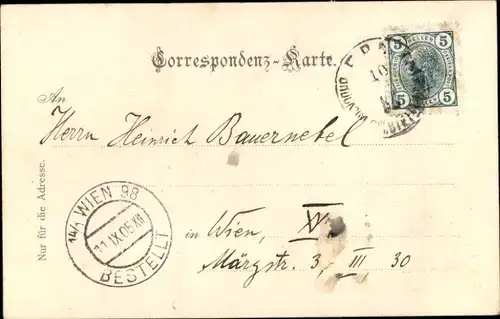 Correspondenz-Karte.
5 HELLER 5
5 5
An
Herrn Heinrich Bauernebel
Nur für die Adresse.
14/1 WIEN 98
11.IX.05.XII
BESTELLT
in Wien, XV.
Märzstr. 3, III, 30